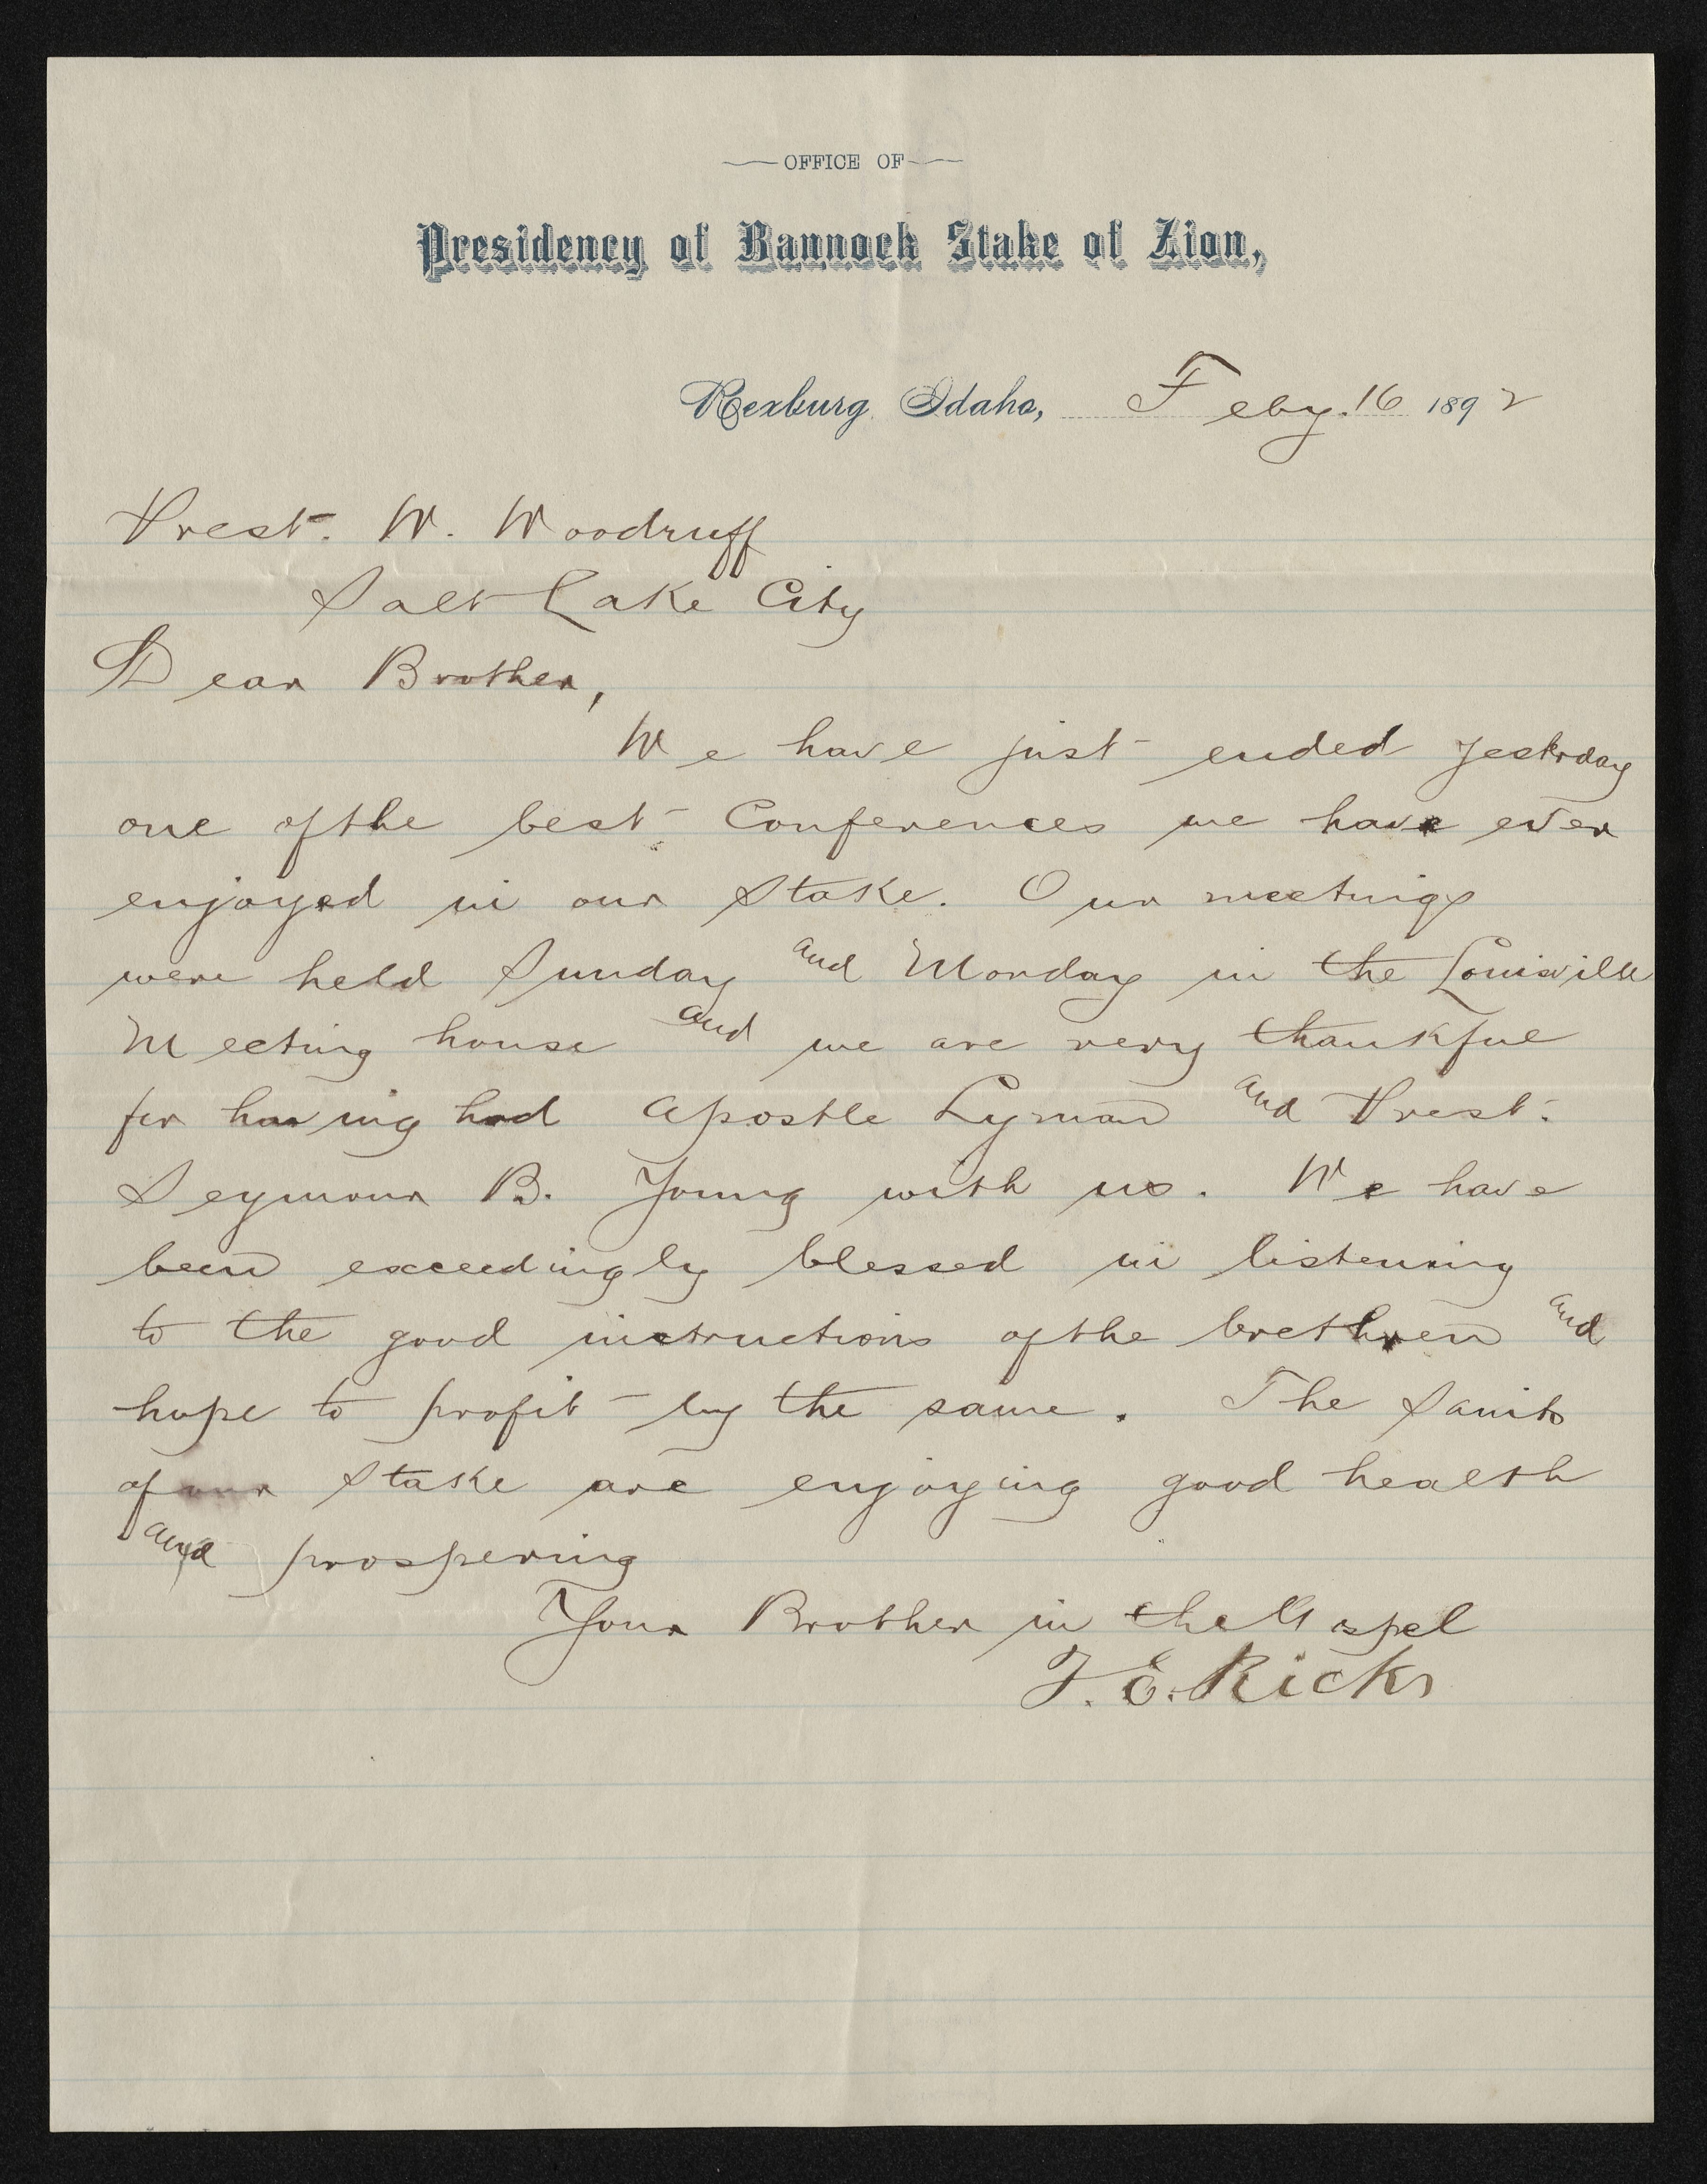 OFFICE OF
Presidency of Bannock Stake of Zion,
Rexburg, Idaho, Feby. 16 1892
Prest. W. Woodruff
Salt Lake City
Dear Brother,
We have just ended yestrday
one of the best Conferences we have ever
enjoyed in our Stake. Our meetings
were held Sunday and Monday in the Louisville
Meeting house and we are very thankful
for having had Apostle Lyman and Prest.
Seymour B. Young with us. We have
been exceedingly blessed in listening
to the good instructions of the brethren and
hope to profit by the same. The Saints
of our Stake are enjoying good health
and prospering
Your Brother in the Gospel
T. E. Ricks